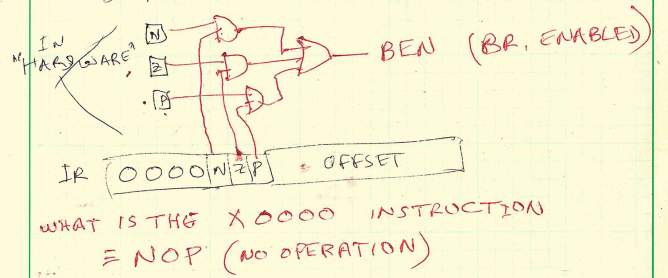 IN
"HARDWARE"
N
Z
P
BEN (BR. ENABLED)
IR 0000 N Z P OFFSET
WHAT IS THE X0000 INSTRUCTION
≡ NOP (NO OPERATION)